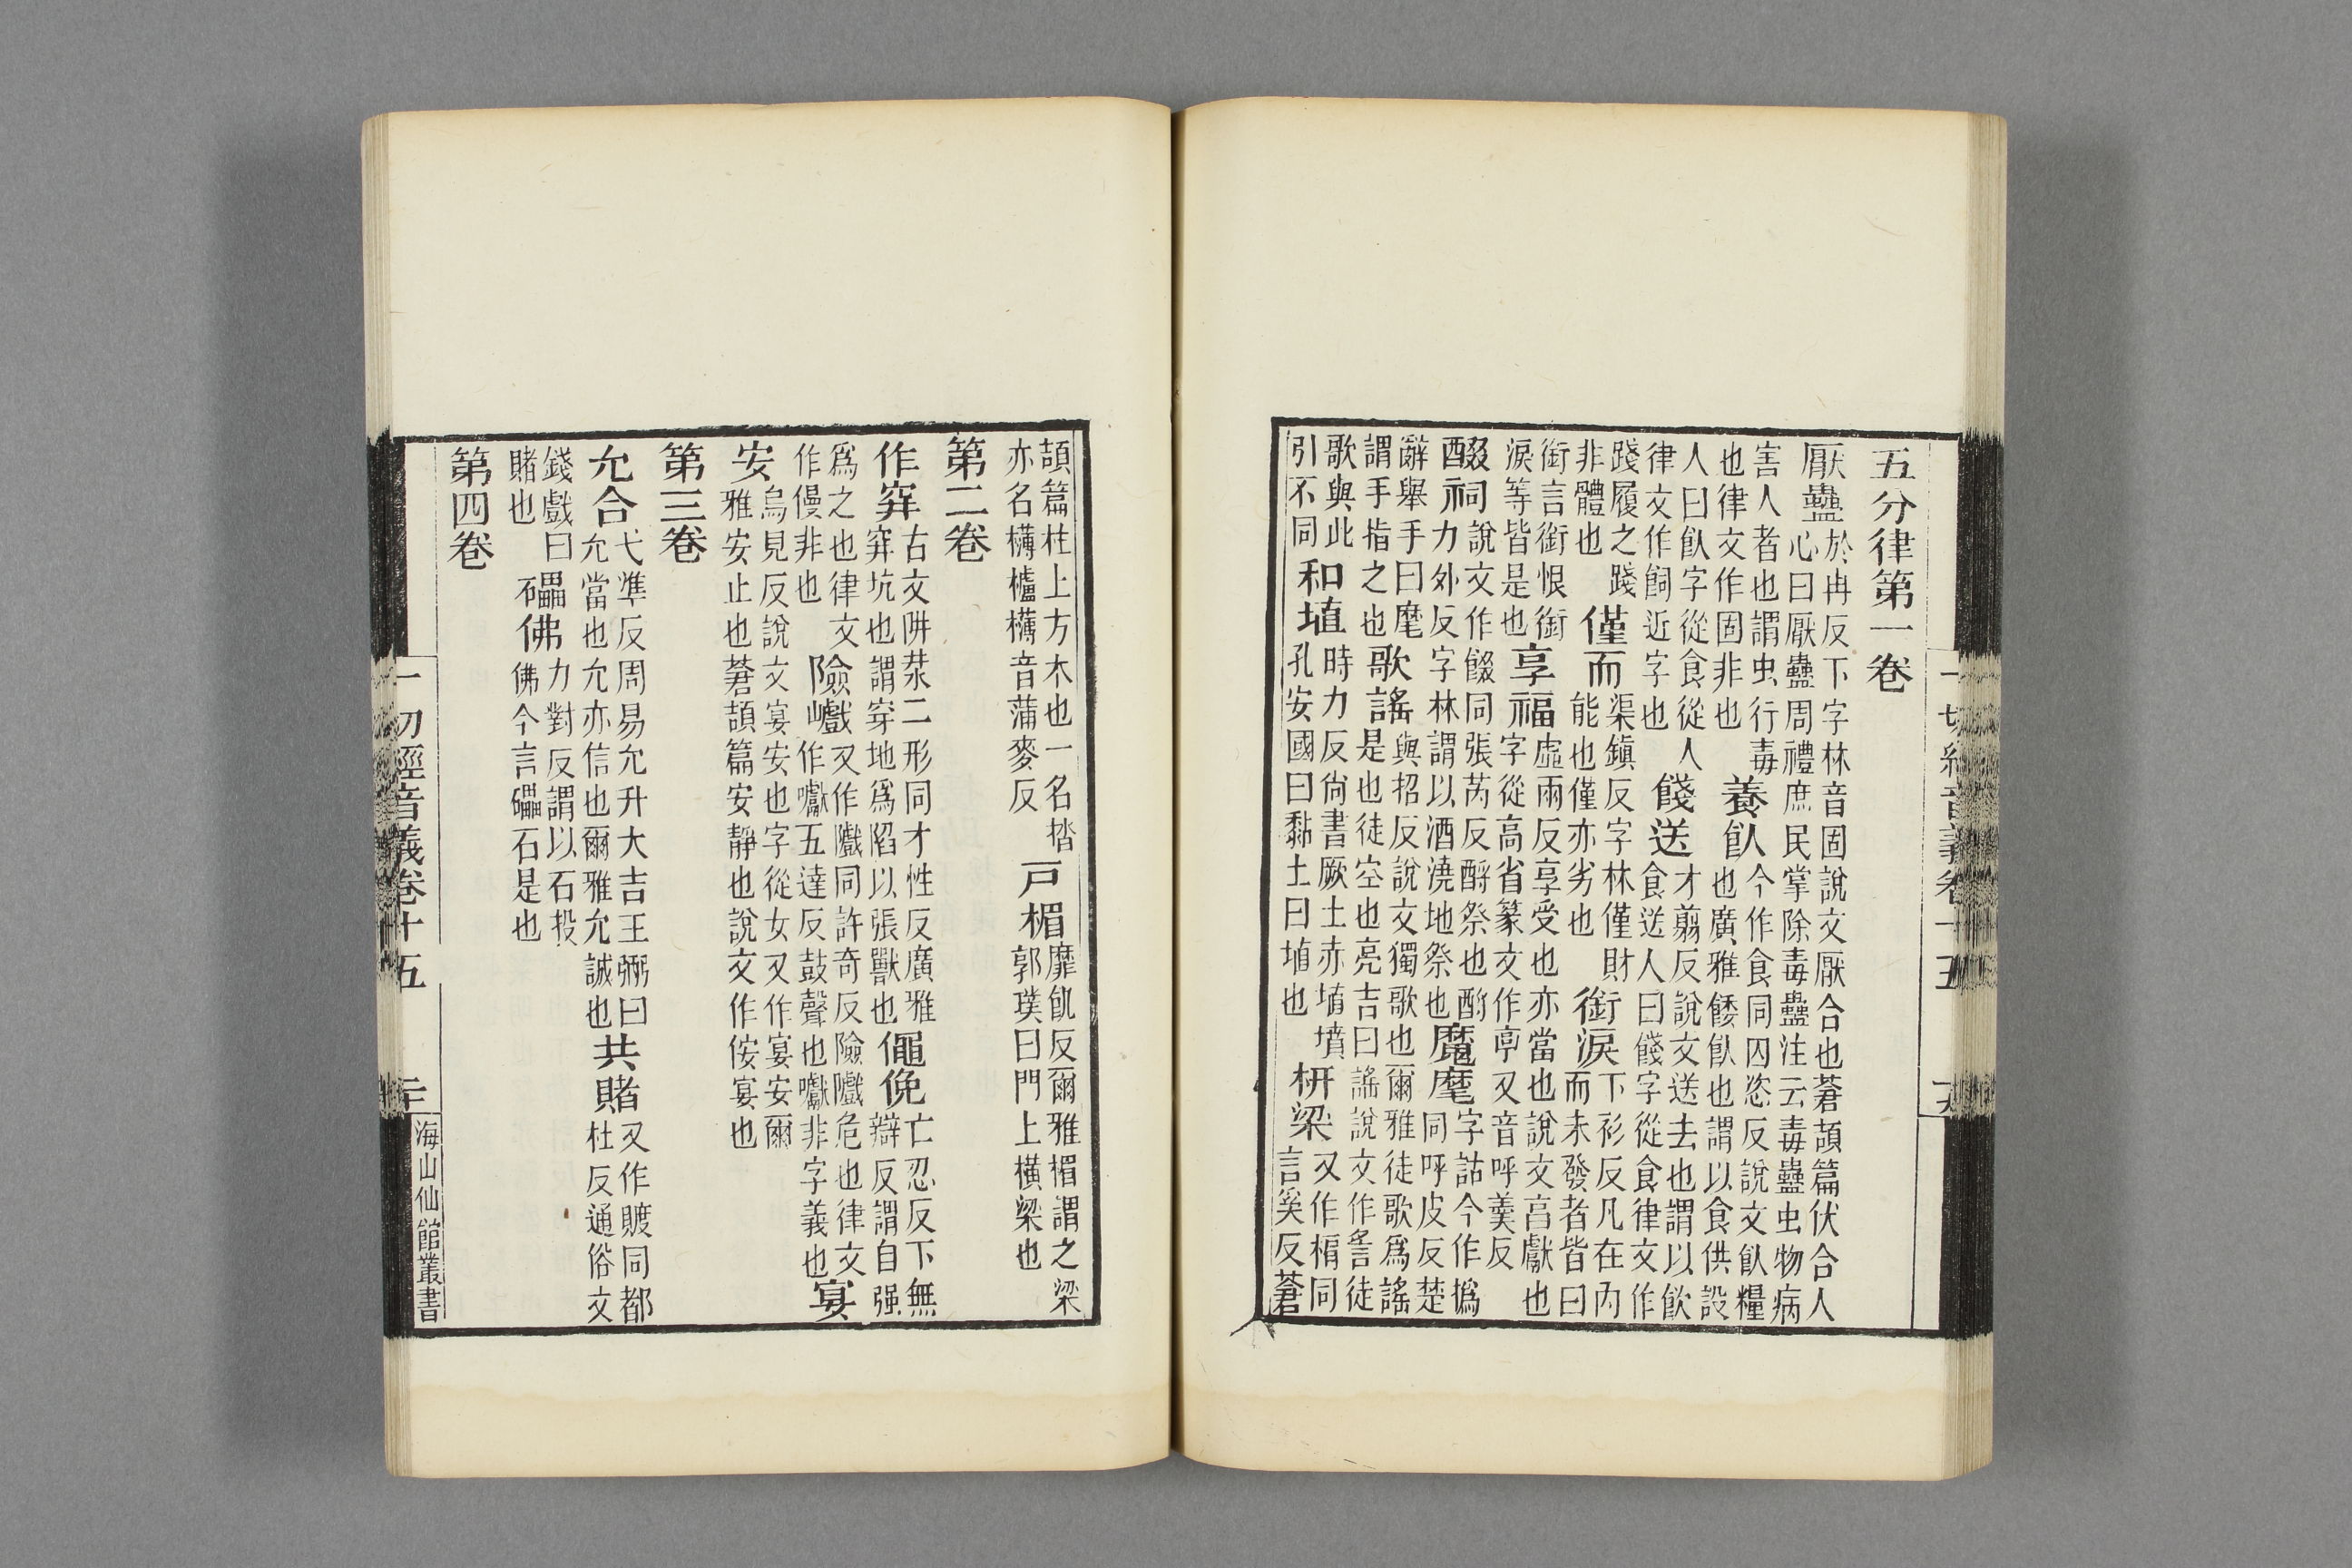 五分律第一卷
厭蠱於冉反下字林音固說文厭合也蒼頡篇伏合人
心曰厭蠱周禮庶民掌除毒蠱注云毒蠱虫物病
害人者也謂虫行毒養飤今作食同囚恣反說文飤糧
也律文作固非也也廣雅餧飤也謂以食供設
人曰飤字從食從人餞送才翦反說文送去也謂以飲
律文作飼近字也食送人曰餞字從食律文作
踐履之踐僅而渠鎮反字林僅財銜淚下衫反凡在內
非體也能也僅亦劣也而未發者皆曰
銜言銜恨銜享福虛兩反享受也亦當也說文亯獻也
淚等皆是也字從高省篆文作亭又音呼羹反
醊祠說文作餟同張芮反酹祭也酌魔麾字詁今作撝
力外反字林謂以酒澆地祭也同呼皮反楚
辭舉手曰麾歌謠與招反說文獨歌也爾雅徒歌爲謠
謂手指之也是也徒空也亮吉曰謠說文作䚻徒
歌與此和埴時力反尙書厥土赤埴墳枅梁又作楄同
引不同孔安國曰黏土曰埴也言奚反蒼
一切經音義卷十五
頡篇柱上方木也一名㭼戸楣靡飢反爾雅楣謂之梁
亦名欂櫨欂音蒲麥反郭璞曰門上橫梁也
第二卷
作穽古文阱汬二形同才性反廣雅僶俛亡忍反下無
穽坑也謂穿地爲䧟以張獸也辯反謂自强
爲之也律文險巇又作隵同許奇反險隵危也律文宴
作僈非也作囐五達反鼓聲也囐非字義也
安烏見反說文宴安也字從女又作宴安爾
雅安止也蒼頡篇安靜也說文作侒宴也
第三卷
允合弋準反周易允升大吉王弼曰共賭又作䞄同都
允當也允亦信也爾雅允誠也杜反通俗文
錢戲曰礧佛力對反謂以石投
賭也石佛今言礧石是也
第四卷
一切經音義卷十五
二十
海山仙館叢書